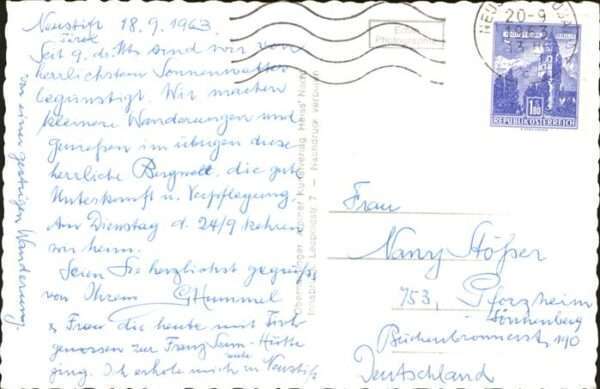 Neustift 18. 9. 1963.
Tirol
Seit 9. ds. Mts sind wir von
herrlichstem Sonnenwetter
begünstigt. Wir machen
kleinere Wanderungen und
genießen im übrigen diese
herrliche Bergwelt, die gute
Unterkunft u. Verpflegung.
Am Dienstag d. 24/9 kehren
wir heim.
Seien Sie herzlichst gegrüßt
von Ihrem Hummel
& Frau die heute mit Tisch
genossen zur Franz Senn-Hütte
ging. Ich erhole mich in Neustift
von einer gestrigen Wanderung.
Echte
Photographie
Innsbruck 7 — Nachdruck verboten
20-9
1963
1.80
REPUBLIK ÖSTERREICH
Frau
Nany Stößer
753, Pforzheim
Sonnenberg
Büchenbronnerstr 110
Deutschland